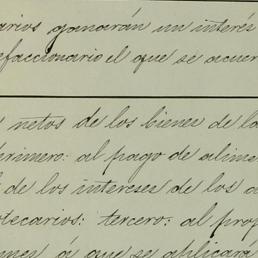 arios ganarán un interés
efaccionario el que se acuer
s netos de los bienes de la
primero: al pago de alime
l de los intereses de los a
otecarios: tercero: al prop
ones á que se aplicará